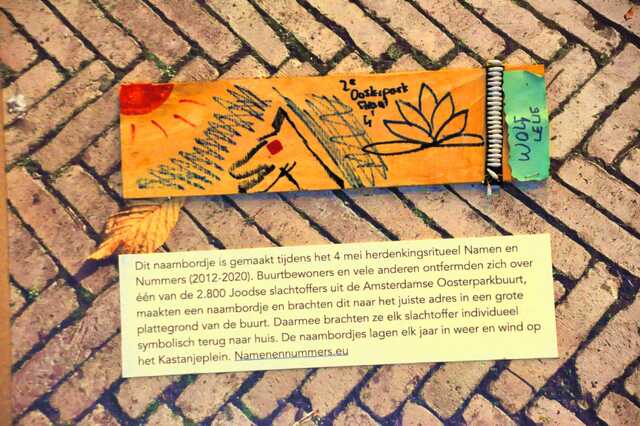 2e
Oosterpark
straat
4
WOLF
LELIE
Dit naambordje is gemaakt tijdens het 4 mei herdenkingsritueel Namen en
Nummers (2012-2020). Buurtbewoners en vele anderen ontfermden zich over
één van de 2.800 Joodse slachtoffers uit de Amsterdamse Oosterparkbuurt,
maakten een naambordje en brachten dit naar het juiste adres in een grote
plattegrond van de buurt. Daarmee brachten ze elk slachtoffer individueel
symbolisch terug naar huis. De naambordjes lagen elk jaar in weer en wind op
het Kastanjeplein. Namenennummers.eu